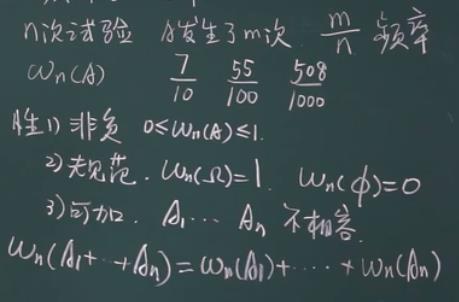 n次试验 A发生了m次 m/n 频率
ωn(A) 7/10 55/100 508/1000
性1) 非负 0≤ωn(A)≤1.
2) 规范. ωn(Ω)=1. ωn(ϕ)=0
3) 可加. A1⋯An 不相容.
ωn(A1+⋯+An)=ωn(A1)+⋯+ωn(An)